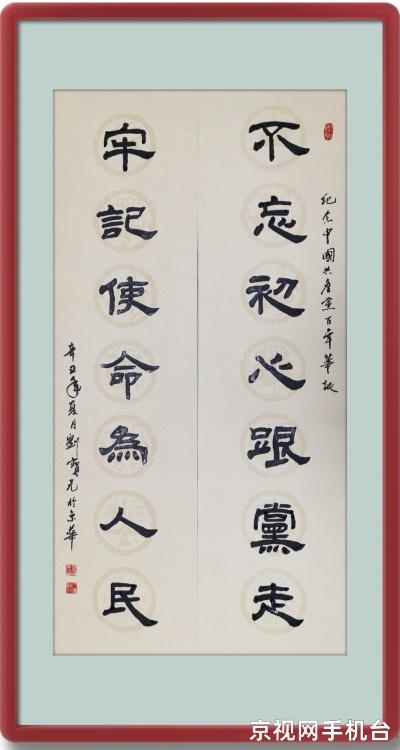 纪念中國共產黨百年華诞
不忘初心跟黨走
牢記使命為人民
辛丑年夏月劉寶元於京華
京视网手机台